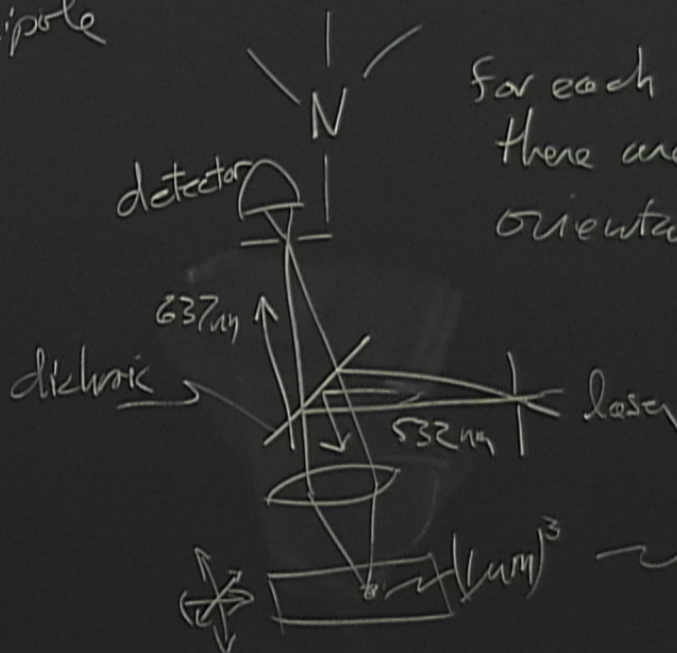 ipole
N
for each
there are
orienta
detector
637nm
dichroic
laser
532nm
(1μm)³